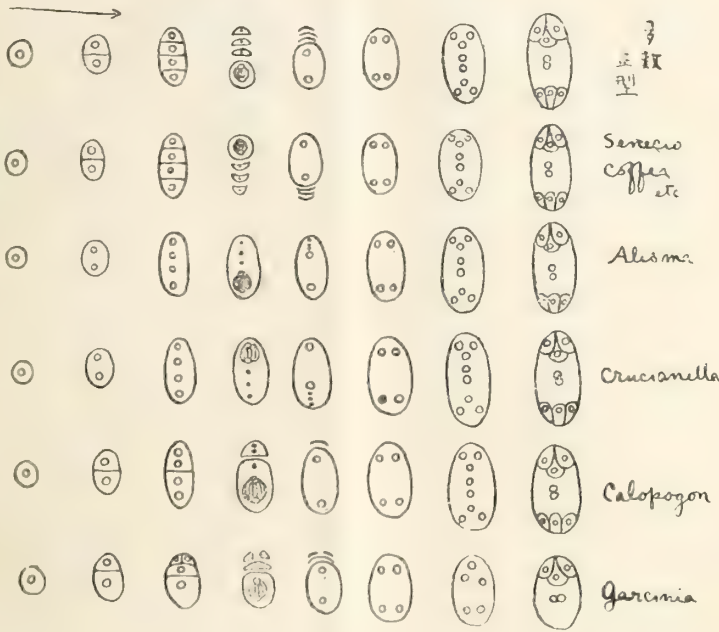 正型
Senecio
Coffea
etc
Alisma
Crucianella
Calopogon
Garcinia